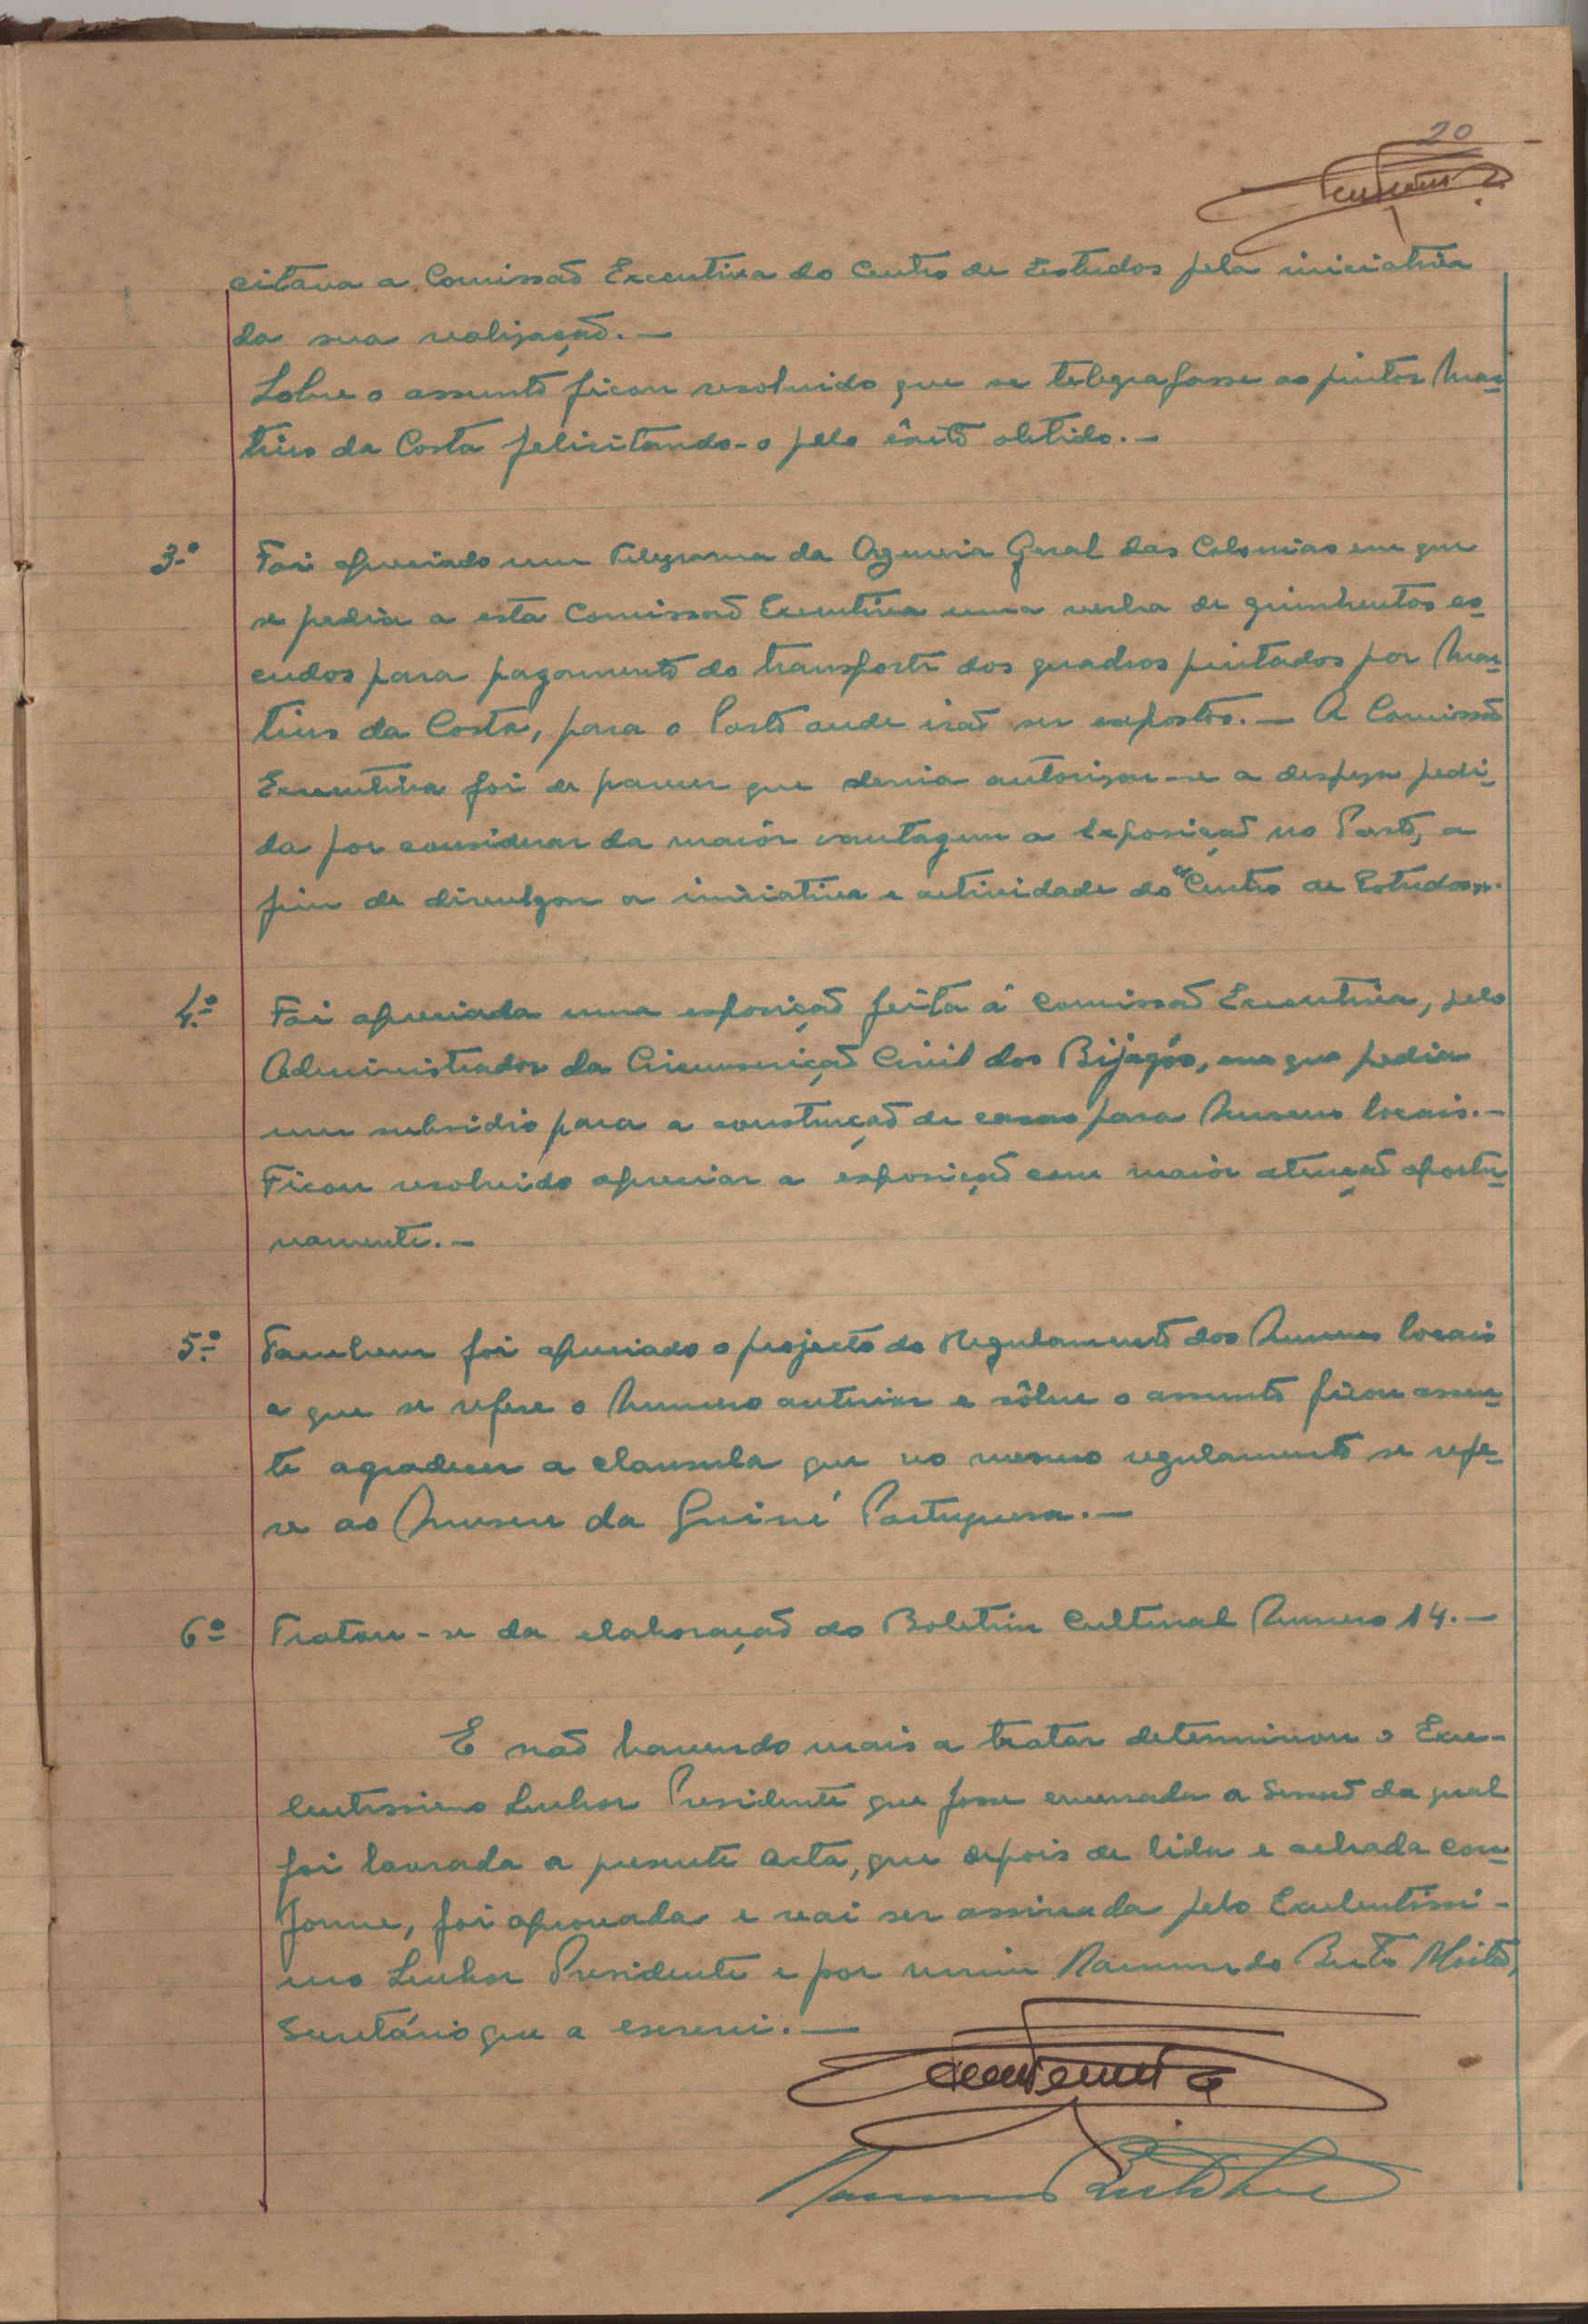 20
citava a Comissão Executiva do Centro de Estudos pela iniciativa
da sua realização.—
Sobre o assunto ficou resolvido que se telegrafasse ao pintor Mar-
tins da Costa felicitando-o pelo êxito obtido.—
3.º Foi apreciado um Telegrama da Agencia Geral das Colonias em que
se pedia a esta Comissão Executiva uma verba de quinhentos es-
cudos para pagamento do transporte dos quadros pintados por Mar-
tins da Costa, para o Porto onde irão ser expostos.— A Comissão
Executiva foi de parecer que devia autorisar-se a despesa pedi-
da por considerar da maiór vantagem a exposição no Porto, a
fim de divulgar a iniciativa e actividade do "Centro de Estudos".
4.º Foi apreciada uma exposição feita á Comissão Executiva, pelo
Administrador da Circunscrição Civil dos Bijagós, em que pedia
um subsidio para a construção de casas para Museus locais.—
Ficou resolvido apreciar a exposição com maiór atenção oportu-
namente.—
5.º Tambem foi apreciado o projecto do Regulamento dos Museus locais
a que se refere o Numero anterior e sôbre o assunto ficou assen-
te agradecer a clausula que no mesmo regulamento se refe-
re ao Museu da Guiné Portuguesa.—
6º Tratou-se da elaboração do Boletim Cultural Numero 14.—
E não havendo mais a tratar determinou o Exce-
lentissimo Senhor Presidente que fosse encerrada a Sessão da qual
foi lavrada a presente acta, que depois de lida e achada con-
forme, foi aprovada e vai ser assinada pelo Excelentissi-
mo Senhor Presidente e por mim Raimundo Brito
Secretário que a escrevi.—